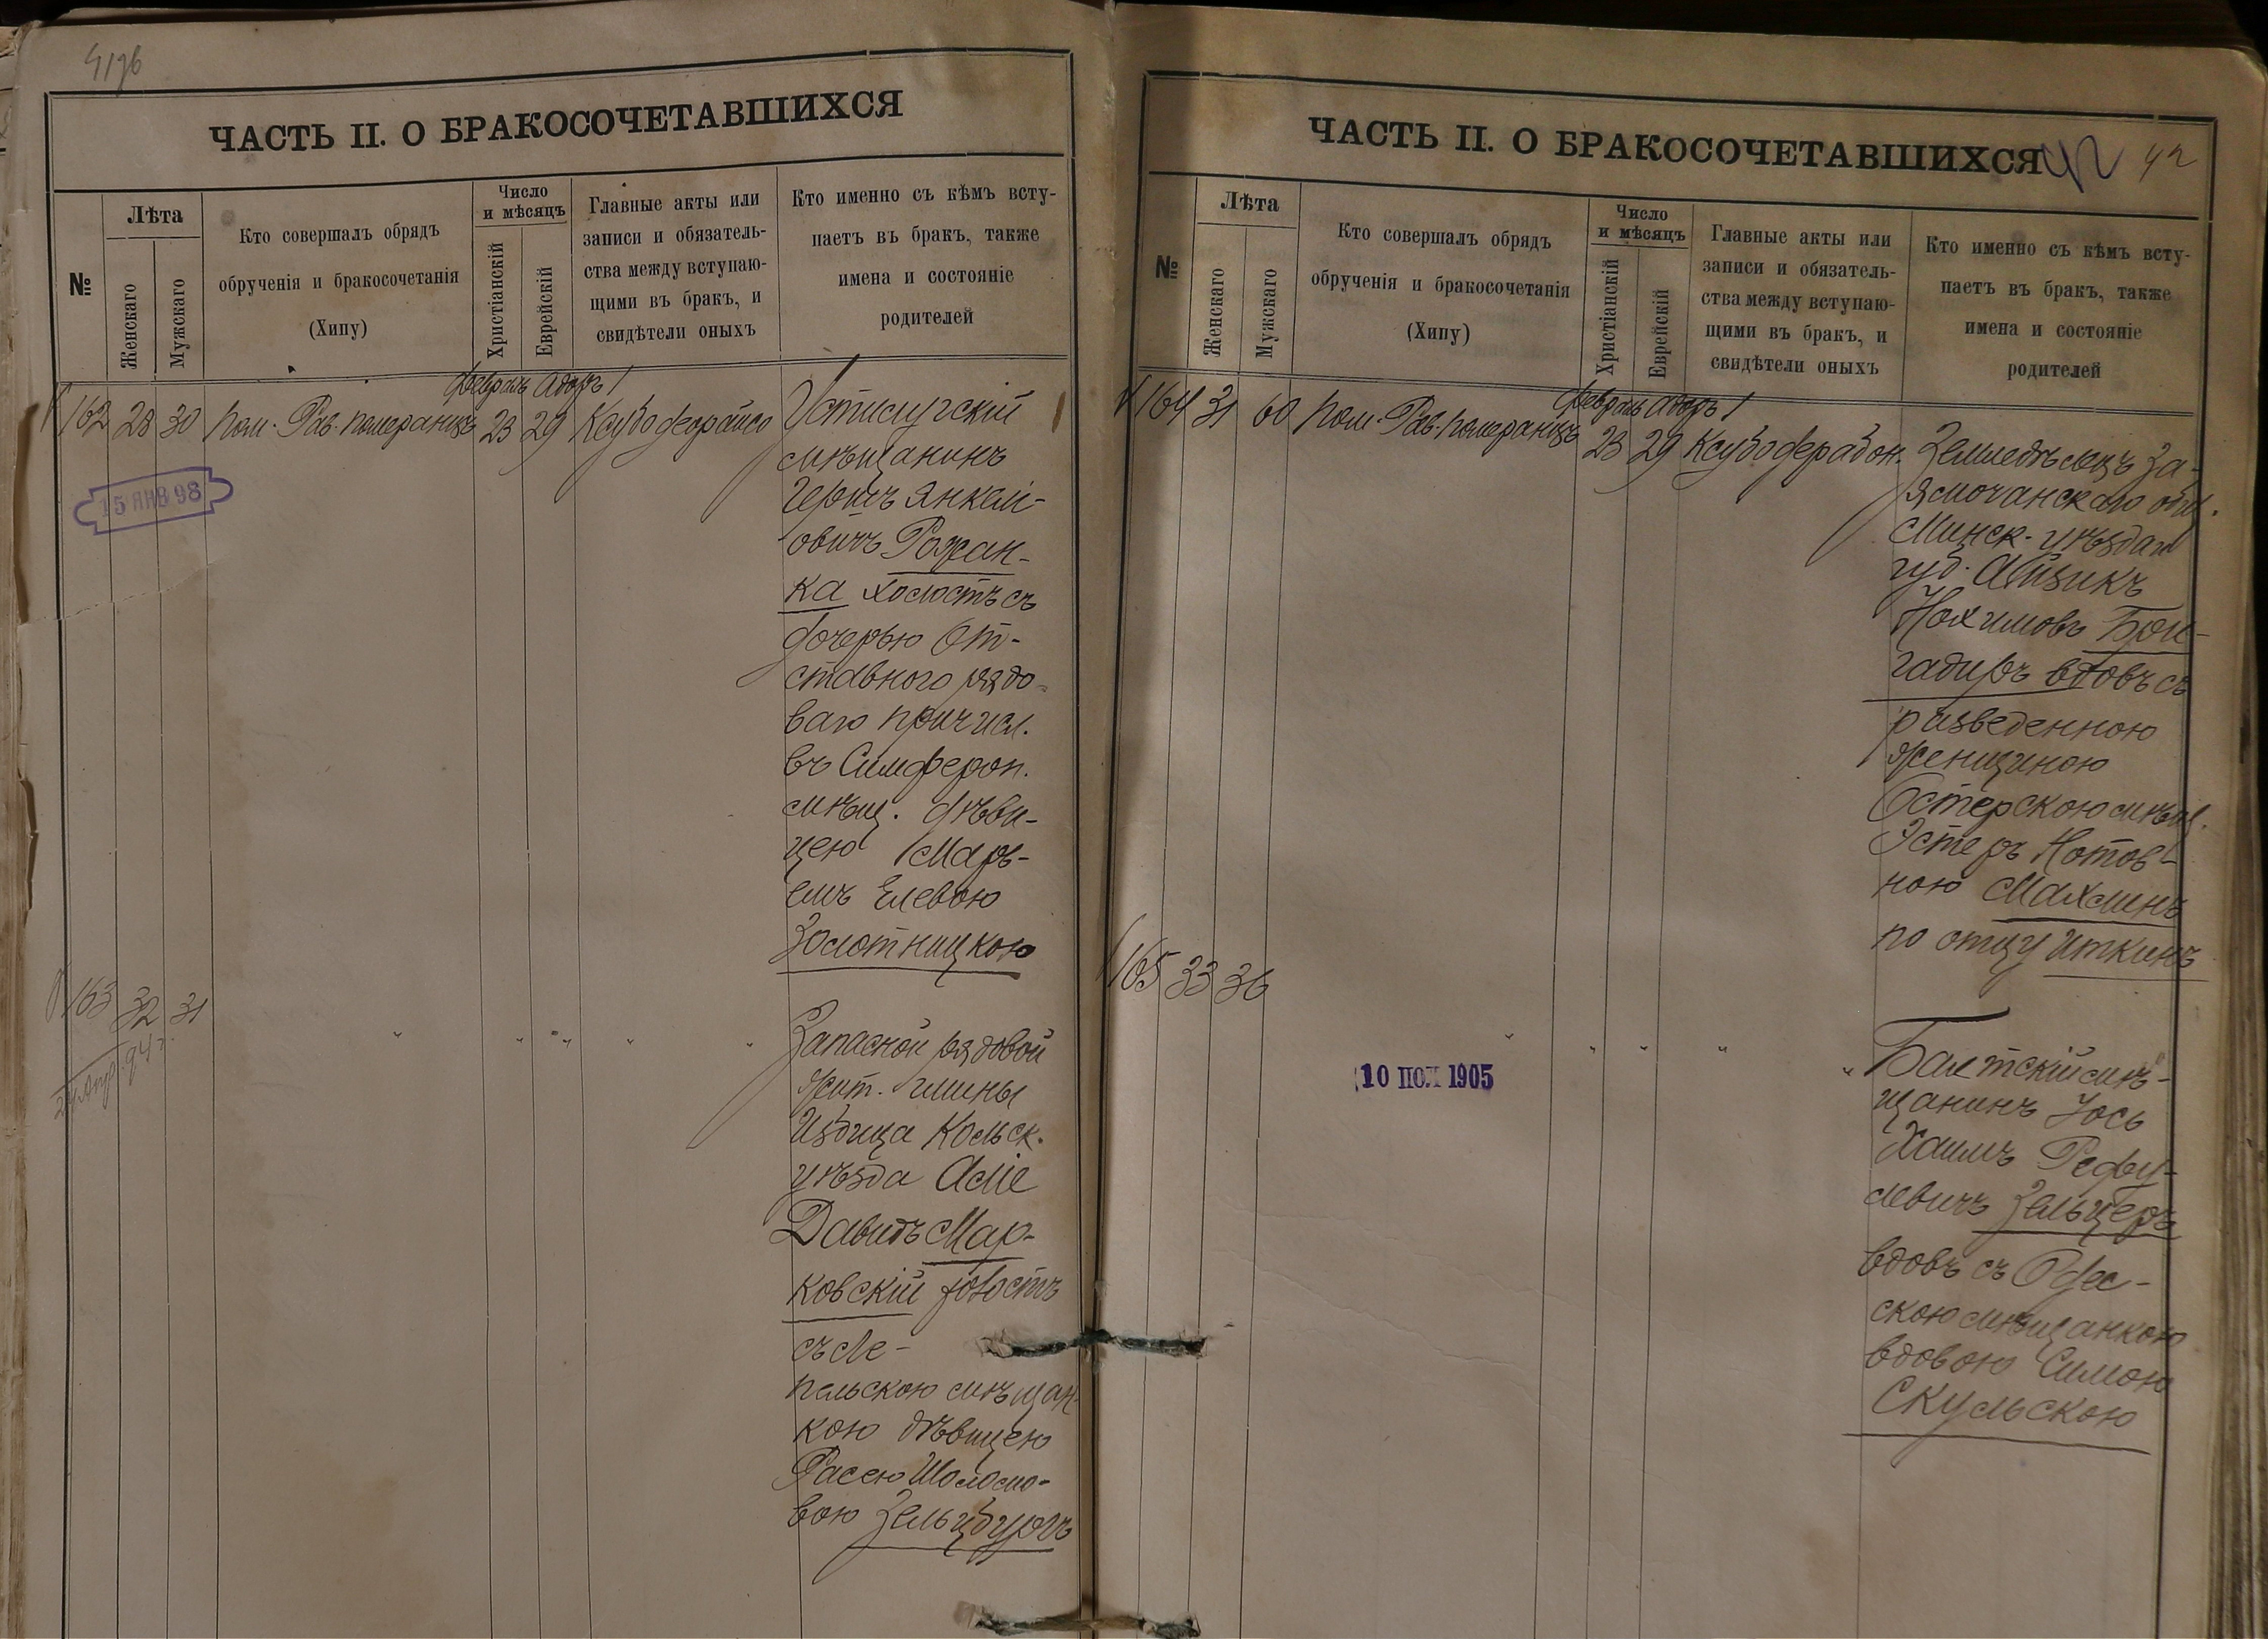 41 об
ЧАСТЬ II. О БРАКОСОЧЕТАВШИХСЯ
№
Лѣта
Женскаго
Мужскаго
Кто совершалъ обрядъ
обрученія и бракосочетанія
(Хипу)
Число
и мѣсяцъ
Христіанскій
Еврейскій
Главные акты или
записи и обязатель-
ства между вступаю-
щими въ бракъ, и
свидѣтели оныхъ
Кто именно съ кѣмъ всту-
паетъ въ бракъ, также
имена и состояніе
родителей
Февраль Адаръ 1
162 28 30 Пом. Рав. Померанцъ 23 29
15 ЯНВ 98
Устилугскій
мѣщанинъ
Гершъ Янкел-
овичъ Рожан-
ка холостъ съ
дочерью От-
ставного рядо-
ваго причисл.
въ Симфероп.
мѣщ. дѣви-
цею Марь-
емъ Елевою
Золотницкою
163 32 31
Запасной рядовой
жит. гмины
Избица Кольск.
уѣзда
Давидъ Мар-
ковскій холостъ
съ Ле-
пельскою мѣщан-
кою дѣвицею
Расею Шоломо-
вою Зельцбургъ
ЧАСТЬ II. О БРАКОСОЧЕТАВШИХСЯ
42 42
№
Лѣта
Женскаго
Мужскаго
Кто совершалъ обрядъ
обрученія и бракосочетанія
(Хипу)
Число
и мѣсяцъ
Христіанскій
Еврейскій
Главные акты или
записи и обязатель-
ства между вступаю-
щими въ бракъ, и
свидѣтели оныхъ
Кто именно съ кѣмъ всту-
паетъ въ бракъ, также
имена и состояніе
родителей
Февраль Адаръ 1
164 31 60 Пом. Рав. Померанцъ 23 29
Земледѣлецъ За-
ямочанскаго общ.
Минск. уѣзда и
губ. Айзикъ
Нохимовъ Бри-
гадиръ вдовъ съ
разведенною
женщиною
Остерскою мѣщ.
Эстеръ Нотов-
ною Махлинъ
по отцу Иткинъ
165 33 36
10 ПОЛ 1905
Балтскій мѣ-
щанинъ Іось
Хаимъ Рефу-
левичъ Зельцеръ
вдовъ съ Одес-
скою мѣщанкою
вдовою Симою
Скульскою